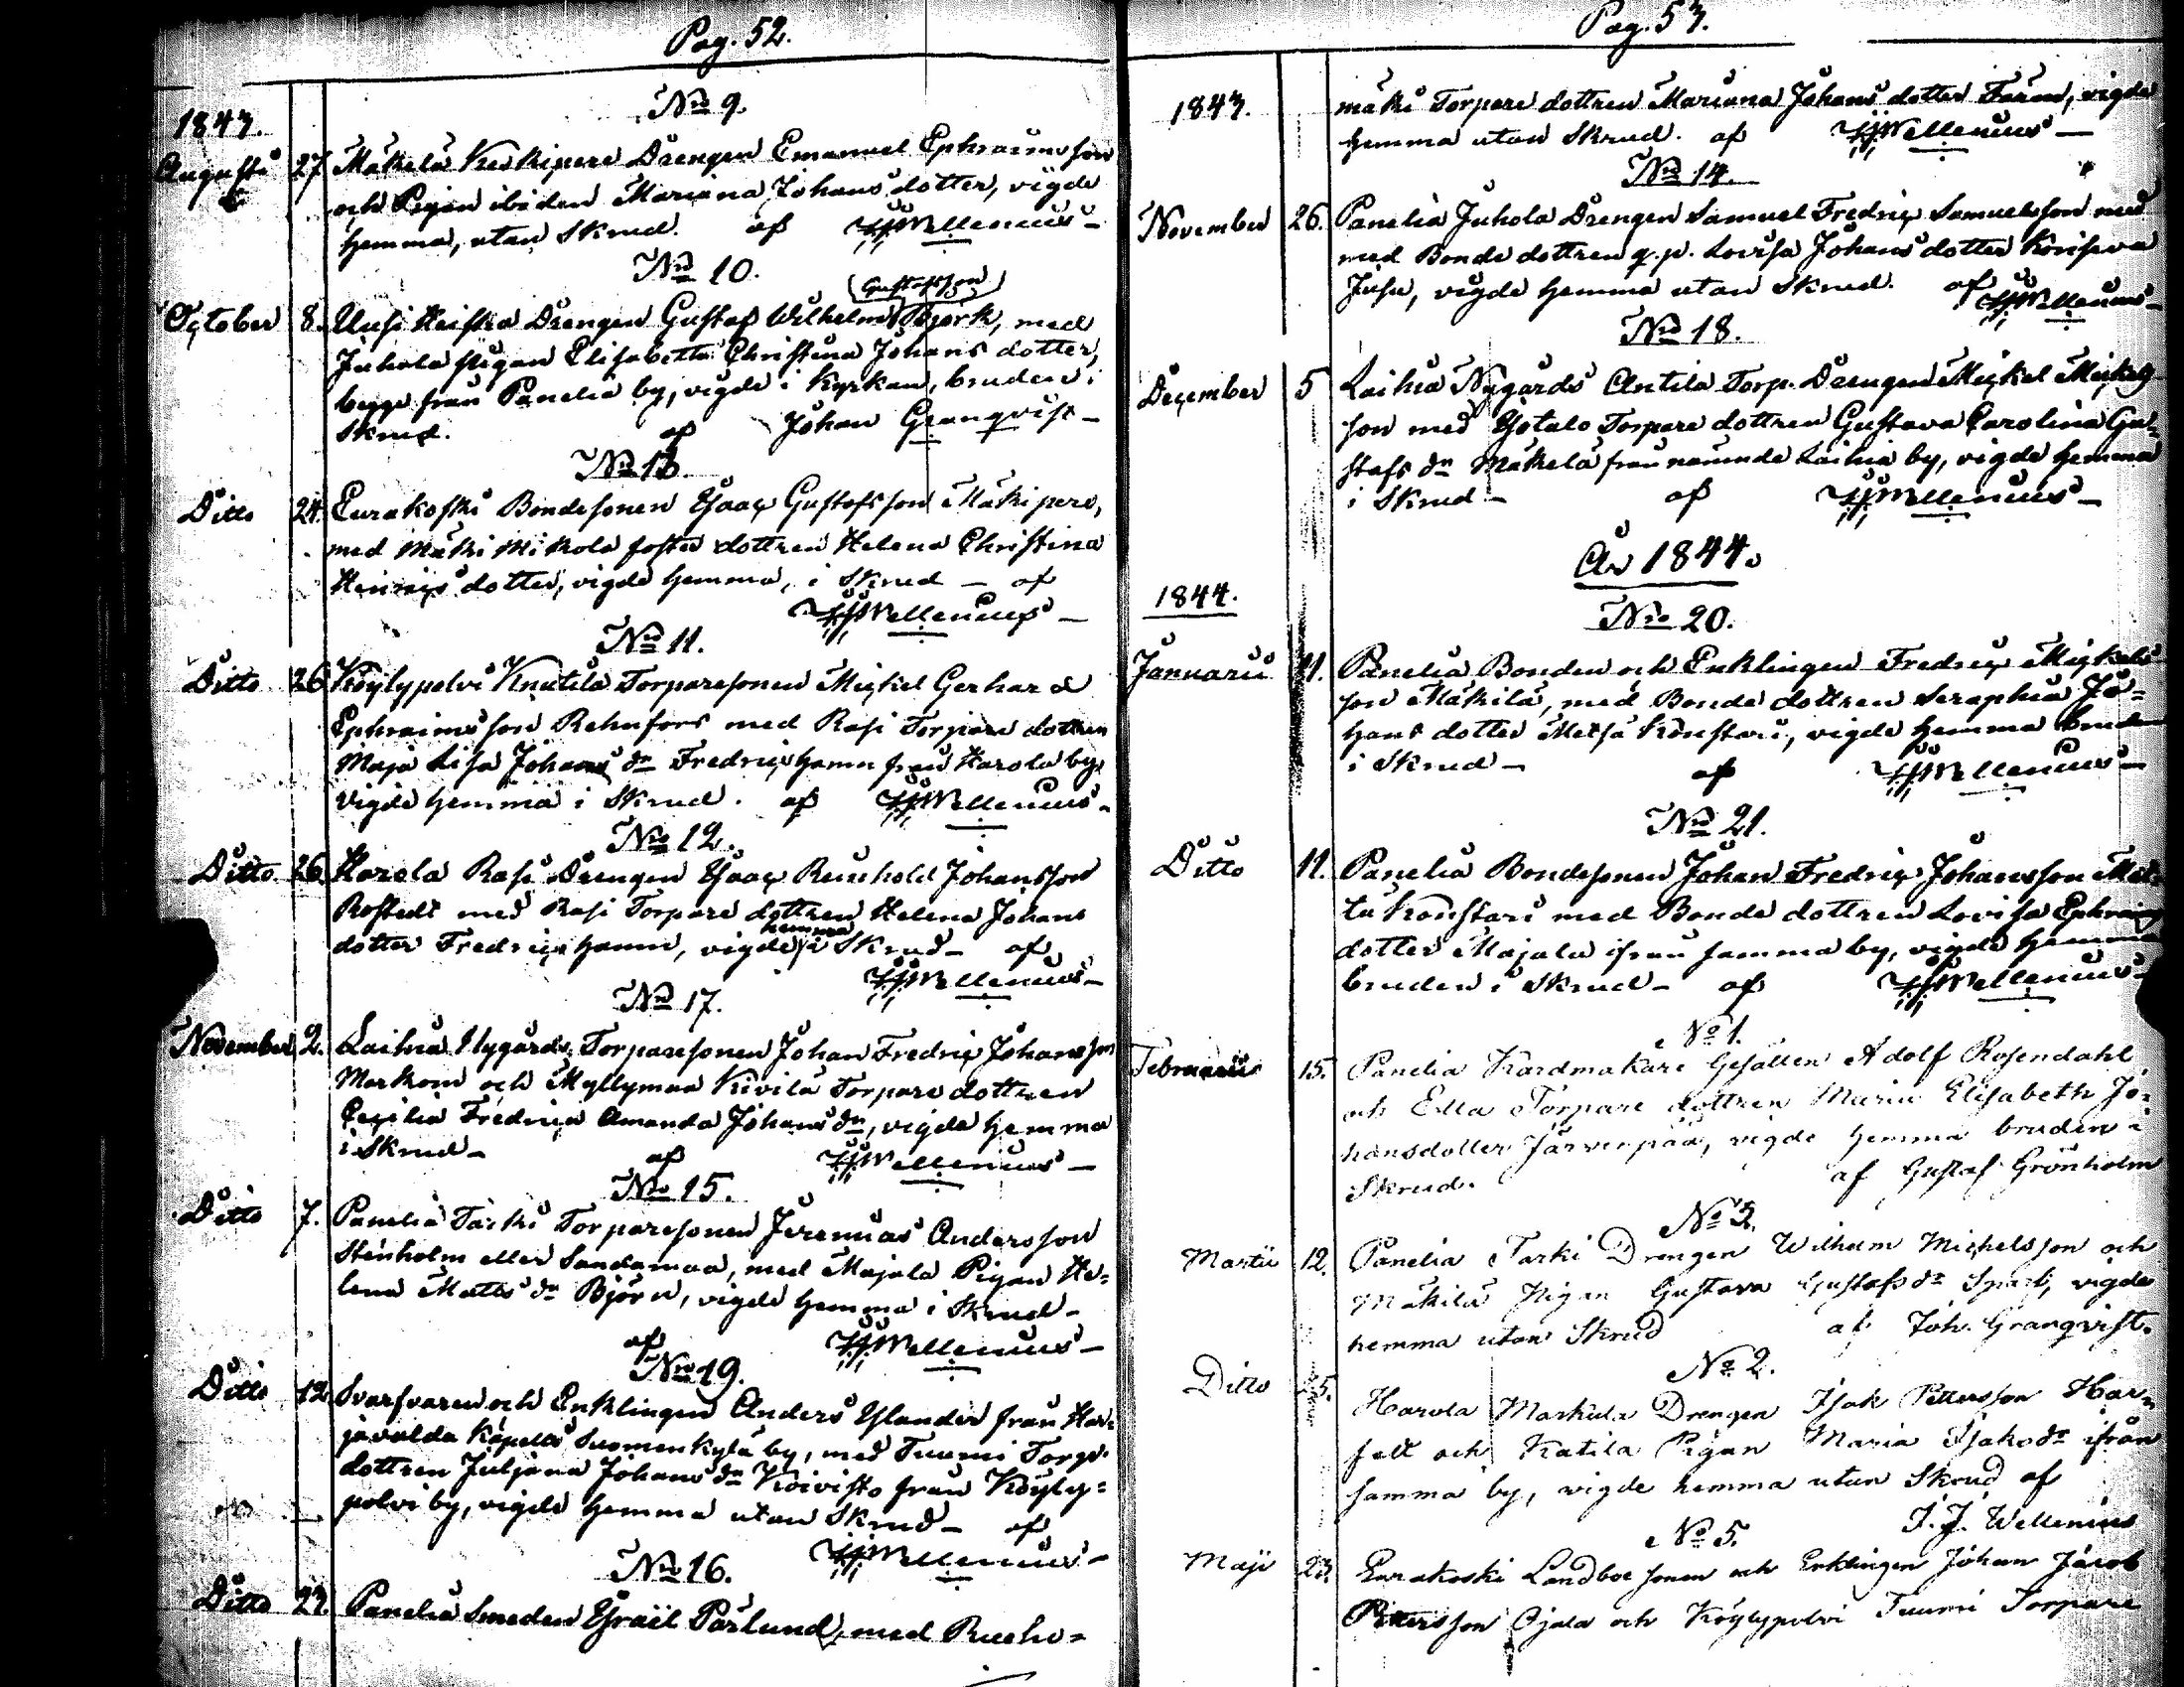 Pag. 52.
1843.
No 9.
Augusti 27 Mäkelä Keskipere Drengen Emanuel Ephraimsson
och Pigan ibidem Mariana Johansdotter, vigde
hemma, utan Skrud. af JJWellenius
No 10.
(Gustafsson)
October 8. Uusi Heiska Drengen Gustaf Wilhelm Björk, med
Juhola pigan Elisabetha Christina Johans dotter,
begge från Panelia by, vigde i Kyrkan, bruden i
Skrud. af Johan Granqvist
No 13.
Ditto 24. Eurakoski Bondesonen Isaac Gustafsson Mäkipere,
med Mäki Mikola foster dottren Helena Christina
Henrics dotter, vigde hemma, i Skrud – af
JJWellenius
No 11.
Ditto 26 Köylypolvi Knutila Torparesonen Mickel Gerhard
Ephraimsson Rehnfors med Rasi Torpare dottren
Maja Lisa Johans dr Fredricshamn från Harola by,
vigde hemma i Skrud. af JJWellenius
No 12.
Ditto 26 Harola Rasi Drengen Isaac Reinhold Johansson
Rostedt med Rasi Torpare dottren Helena Johans
dotter Fredricshamn, vigde hemma i Skrud – af
JJWellenius
No 17.
November 2. Laihia Nygårds Torparesonen Johan Fredric Johansson
Markom och Myllymaa Kivilä Torpare dottren
Cecilia Fredrica Amanda Johans dr, vigde hemma
i Skrud – af JJWellenius
No 15.
Ditto 7. Panelia Tarki Torparesonen Jeremias Andersson
Stenholm eller Sandamaa, med Majala Pigan He=
lena Matts dr Björn, vigde hemma i Skrud –
af JJWellenius
No 19.
Ditto 12 Svarfvaren och Enklingen Anders Ylander från Har=
javalda Kapells Suomenkylä by, med Tuumi Torp.
dottren Juljana Johans dr Koivisto från Köyly=
polvi by, vigde hemma utan Skrud – af
JJWellenius
No 16.
Ditto 23. Panelia Smeden Israil Pärlund, med Rieho=
Pag. 53.
1843. mäki Torpare dottren Mariana Johans dotter Färm, vigde
hemma utan Skrud. af JJWellenius
No 14.
November 26. Panelia Juhola Drengen Samuel Fredric Samuelsson med
med Bonde dottren q. p. Lovisa Johans dotter
Jusu, vigde hemma utan Skrud. af JJWellenius
No 18.
December 5 Laihia Nygårds Antila Torp. Drengen Mickel Mickels
son med Ylötalo Torpare dottren Gustava Carolina Gu=
stafs dr Mäkelä från nämnde Laihia by, vigde hemma
i Skrud – af JJWellenius
År 1844.
1844.
No 20.
Januarii 11. Panelia Bonden och Enklingen Fredric Mickels
son Mäkilä, med Bonde dottren Seraphia Jo=
hans dotter Metsä Könstari, vigde hemma bruden
i Skrud – af JJWellenius
No 21.
Ditto 11. Panelia Bondesonen Johan Fredric Johansson Met=
sä Könstari med Bonde dottren Lovisa Ephraims
dotter Majala ifrån samma by, vigde hemma
bruden i Skrud – af JJWellenius
No 1.
Februarii 15. Panelia Kardmakare Gesällen Adolf Rosendahl
och Edla Torpare dottren Maria Elisabeth Jo=
hansdotter Järvenpää, vigde hemma bruden i
Skrud. af Gustaf Grönholm
No 3.
Martii 12. Panelia Tarki Drengen Wilhelm Michelsson och
Mäkilä Pigan Gustava Gustafs dr vigde
hemma utan Skrud af Joh. Granqvist.
No 2.
Ditto 25. Harola Markula Drengen Isak Pettersson Har=
felt och Katila Pigan Maria Isaks dr ifrån
samma by, vigde hemma utan Skrud af
J. J. Wellenius
No 5.
Maji 23. Eurakoski Landboe sonen och Enklingen Johan Jacob
Pettersson Ojala och Köylypolvi Tuumi Torpare